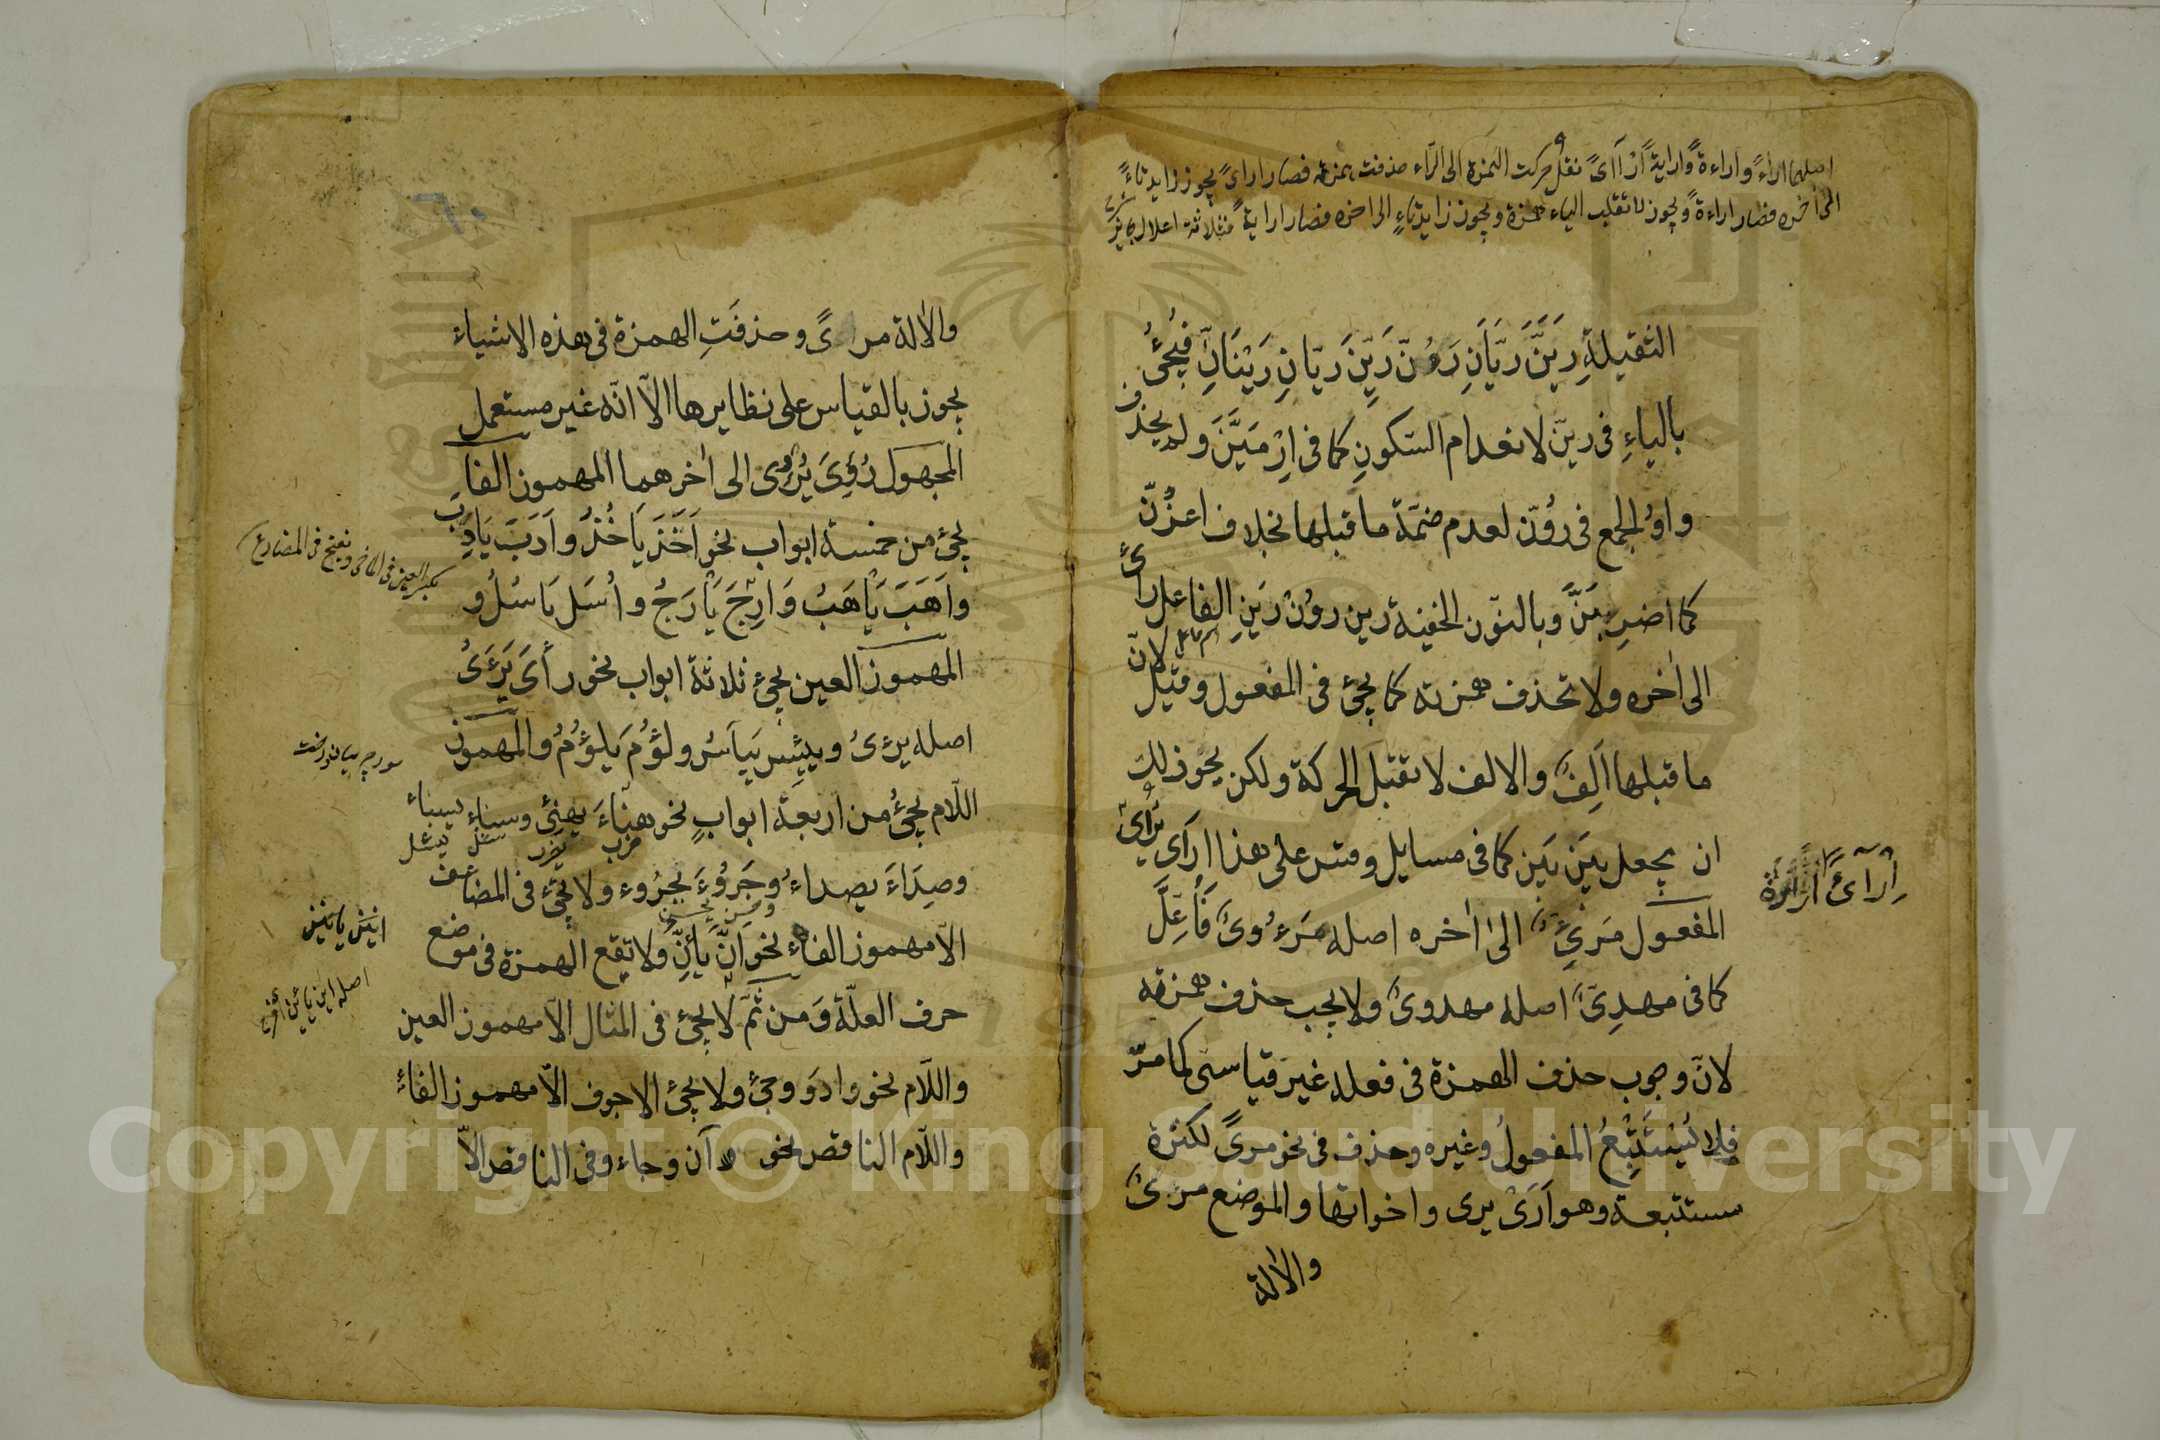 اصلهما اراءً واراءةً وارايةً أرْآاىً نقل حركت الهمزة الى الرّاء حذفت همزته فصار اراىً يجوز زايد تاءً
الى اخره فصار اراءةً ويجوز لا تقلب الياء همزة ويجوز زايد تاءٍ الى اخره فصار ارايةً فثلاثة اعلال
الثقيلةِ رَيَنَّ رَيَّانِ رَوُنّ رَيِنَّ رَيّانِ رَيْنَانِّ فيُجئُ
بالياءِ فى رينّ لانعدام السّكونِ كما فى اِرْمِيَنَّ ولم يحذف
واوُ الجمع فى روُنّ لعدم ضمّة ما قبلها بخلاف اغزُنّ
كما اضرِبَنَّ وبالنّون الخفيفة رين روُنْ رَيِنِ الفاعل رائٍ
الى اٰخره ولا تحذف همزته كما يجئ فى المفعول وقيل لانّ
ما قبلها اَلِفٌ والالف لا تقبل الحركة ولكن يجوز لك
ان يجعل بَين بَين كما فى مسايل وقس على هذا اَرَاى يُرَاىُ
المفعول مَرئِىٌّ الىٰ اٰخره اصله مَرءُوىٌ فَاُعِلَّ
كما فى مهدِىٌّ اصله مهدوىٌ ولا يجب حذف همزته
لانّ وجوب حذف الهمزة فى فعله غير قياسى كما مرّ
فلا يُستَتْبِعُ المفعولُ وغيره وحذف فى نحو مرىً لكثرة
مستتبعة وهو اَرَىْ يرى واخواتها والموضع مرىً
والاٰلة
اِرْآىً
والاٰلة مرىً وحذفَتِ الهمزة فى هذه الاشياء
يجوز بالقياس على نظايرها الاّ انّه غير مستعمل
المجهول رُؤِىَ يُرْؤى الى اٰخرهما المهموز الفاءِ
يجئ من خمسة ابواب نحو اَخَذَ يَاخُذُ واَدَبَ يَادِبُ
واَهَبَ يَاْهَبُ وَارِجَ يَاْرَجُ واُسَل يَاسُلُ و
المهموز العين يجئ ثلاثة ابواب نحو رأىَ يَرَءَىُ
اصله يرءىُ ويئِس يَيأسُ ولَؤُمَ يلوُمُ والمهموز
اللّام يجئُ من اربعة ابوابٍ نحو هنّاءَ يهنِئُ وسباء يسباء
ضرب يضرب سئل يسئل
وصِدَاءَ يصداءُ وجَرُوءَ يجرُوء ولا يجئ فى المضاعف
وحسن يحسن
الاّ مهموز الفاء نحو انّ يأنّ ولا تقع الهمزة فى موضع
حرف العلّة وَمن ثَمّ لا يجئ فى المثال الاّ مهموز العين
واللّام نحو وادَو وجئ ولا يجئ الاجوف الاّ مهموز الفاءُ
واللّام الناقص نحو آن وجاء وفى الناقص الاّ
بكسر العين فى الماضى وتفتح فى المضارع